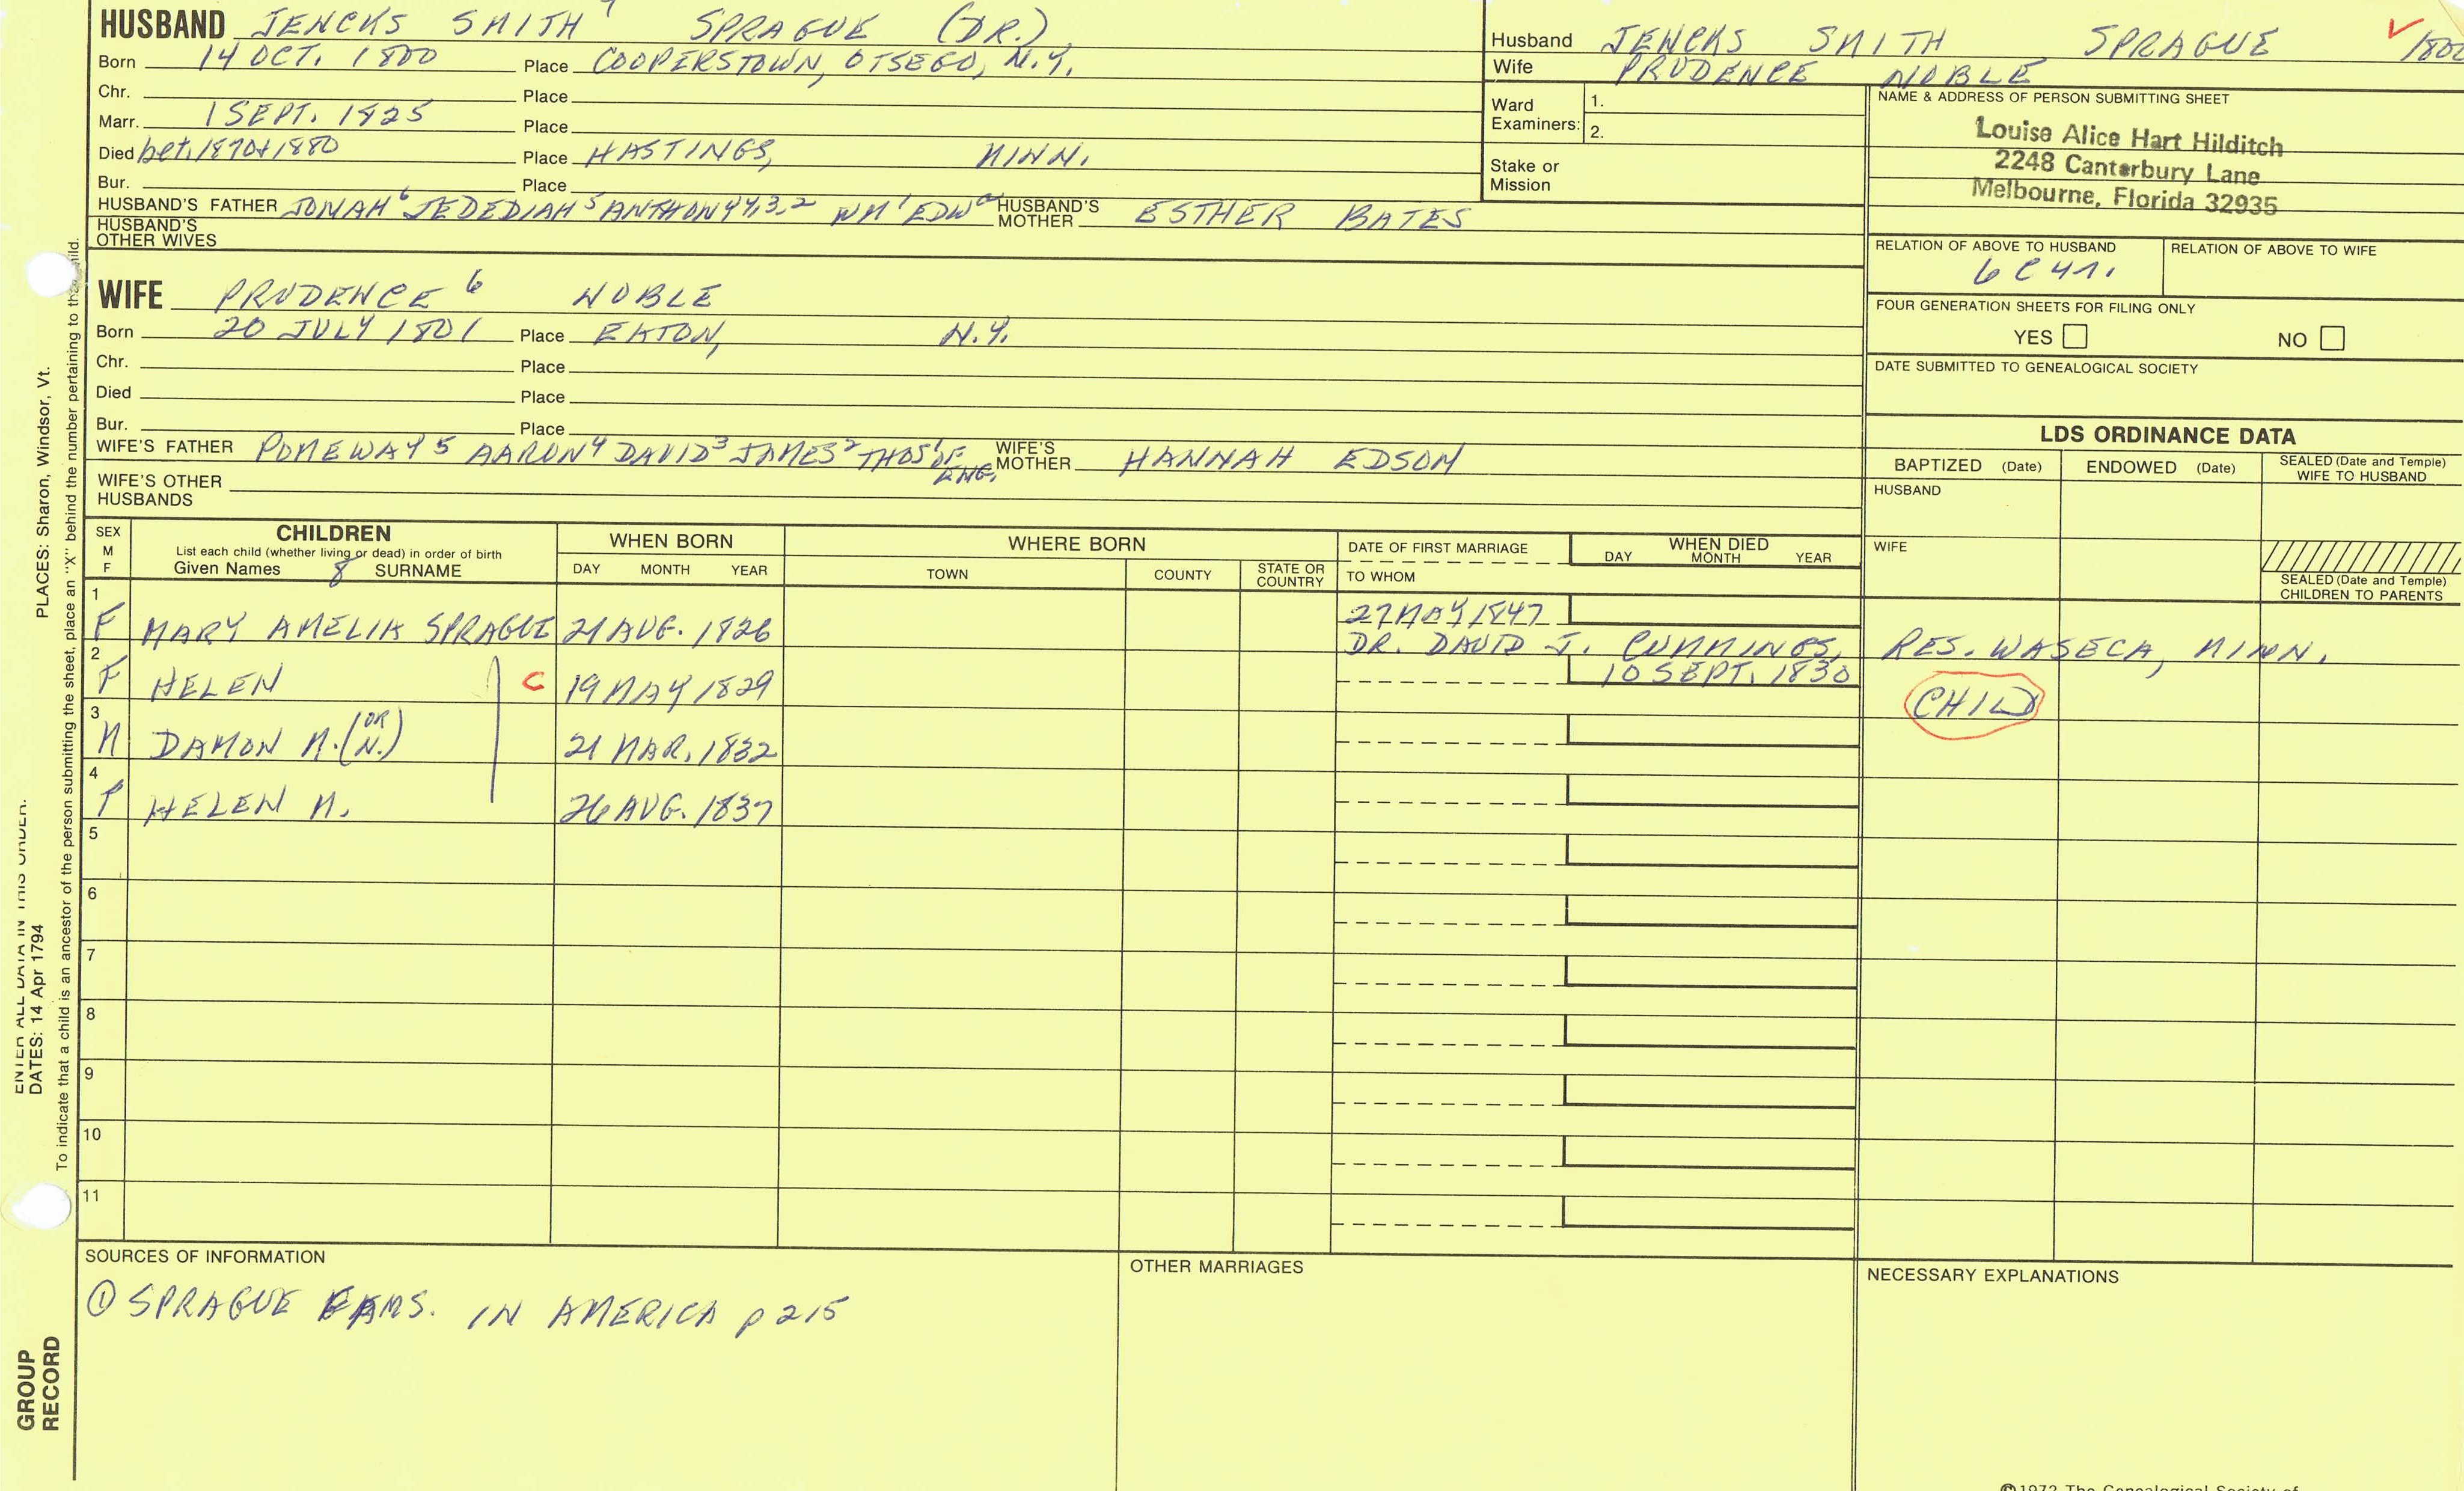 HUSBAND JENCKS SMITH 7 SPRAGUE (DR.)
Born 14 OCT. 1800 Place COOPERSTOWN, OTSEGO, N.Y.
Chr. Place
Marr. 1 SEPT. 1825 Place
Died bet. 1870 + 1880 Place HASTINGS, MINN.
Bur. Place
HUSBAND'S FATHER JONAH 6 JEDEDIAH 5 ANTHONY 4,3,2 WM 1 EDW a HUSBAND'S MOTHER ESTHER BATES
HUSBAND'S OTHER WIVES
Husband JENCKS SMITH SPRAGUE ✓ 1800
Wife PRUDENCE NOBLE
Ward Examiners: 1.
2.
Stake or Mission
NAME & ADDRESS OF PERSON SUBMITTING SHEET
Louise Alice Hart Hilditch
2248 Canterbury Lane
Melbourne, Florida 32935
RELATION OF ABOVE TO HUSBAND RELATION OF ABOVE TO WIFE
6C4r.
FOUR GENERATION SHEETS FOR FILING ONLY
YES NO
DATE SUBMITTED TO GENEALOGICAL SOCIETY
WIFE PRUDENCE 6 NOBLE
Born 20 JULY 1801 Place EATON, N.Y.
Chr. Place
Died Place
Bur. Place
WIFE'S FATHER POMEWAY 5 AARON 4 DAVID 3 JAMES 2 THOS 1 OF ENG. WIFE'S MOTHER HANNAH EDSON
WIFE'S OTHER HUSBANDS
LDS ORDINANCE DATA
BAPTIZED (Date) ENDOWED (Date) SEALED (Date and Temple) WIFE TO HUSBAND
HUSBAND
WIFE
SEALED (Date and Temple) CHILDREN TO PARENTS
SEX M F CHILDREN WHEN BORN WHERE BORN DATE OF FIRST MARRIAGE WHEN DIED
List each child (whether living or dead) in order of birth
Given Names 8 SURNAME DAY MONTH YEAR TOWN COUNTY STATE OR COUNTRY TO WHOM DAY MONTH YEAR
1 F MARY AMELIA SPRAGUE 21 AUG. 1826 27 MAY 1847
DR. DAVID J. CUMMINGS, RES. WASECA, MINN.
2 F HELEN C 19 MAY 1829 10 SEPT. 1830 CHILD
3 M DAMON M. (OR N.) 21 MAR. 1832
4 F HELEN M. 26 AUG. 1837
5
6
7
8
9
10
11
SOURCES OF INFORMATION
① SPRAGUE FAMS. IN AMERICA p 215
OTHER MARRIAGES
NECESSARY EXPLANATIONS
©1972 The Genealogical Society of
ENTER ALL DATA IN THIS ORDER:
DATES: 14 Apr 1794 PLACES: Sharon, Windsor, Vt.
To indicate that a child is an ancestor of the person submitting the sheet, place an "X" behind the number pertaining to that child.
GROUP
RECORD